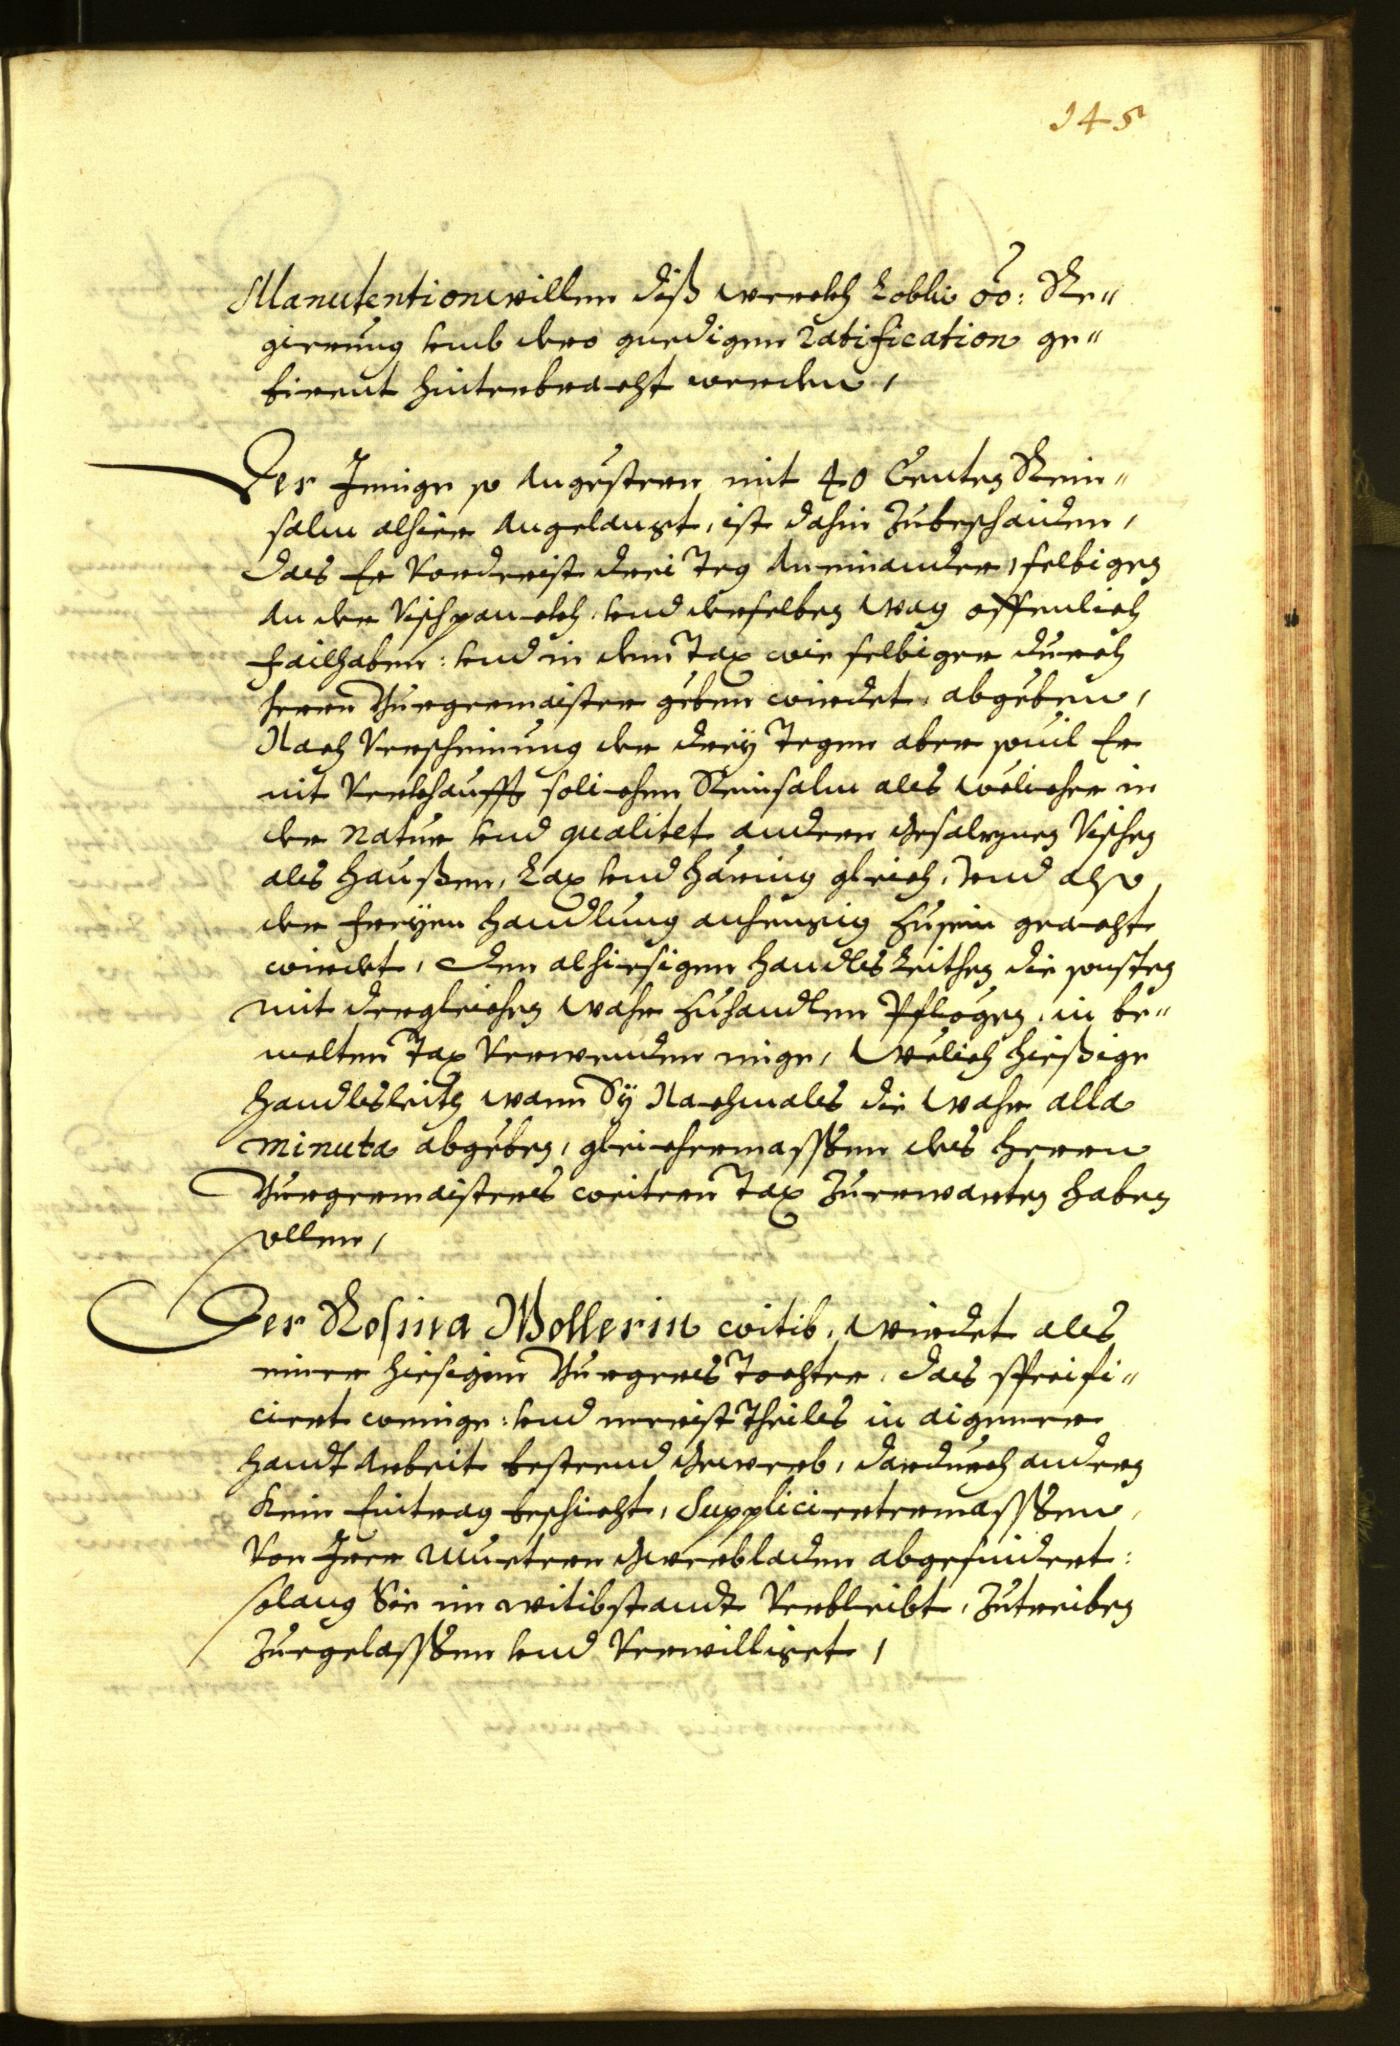 145
Manutentionwillen diß werckh Lobl: oö: Re„
gierung umb dero gnedigen ratification ge„
birent hinterbracht werden,
Der Jenige so Angestern mit 40 Centen Rein„
salm alhier Angelangt, ist dahin Zubeschaiden,
das Er Vorderist drei Teg Aneinander, selbigen
An der Vischpanckh, und derselben wag offenlich
failhaben: und in dem Tax wie selbiger durch
herrn Burgermaister geben wirdet, abgeben,
Nach Verscheinung der dreÿ Tegen aber sovil Er
nit Verkhaufft solichen Reinsalm als welicher in
der natur und qualitet andern Gesalznen Vischen
als Haußen, Lax und Häring gleich, und also
der freÿen Handlung anhengig zusein geacht
wirdet, den alhiesigen Handls Leithen die sonsten
mit dergleichen wahr zuhandlen Pflegen, in be„
melten Tax Verwenden mige, Welich hießige
Handlsleith wann Sÿ Nachmales die wahr alla
minuta abgeben, gleichermassen des herrn
Burgermaisters weitern Tax Zuerwarten haben
sollen,
Der Rosina Mollerin witib, wirdet als
einer hiesigen Burgers Tochter, das specifi„
ciert wenige: und meerist Theils in aigner
Handt Arbeit besteend Gewerb, dardurch andern
kein Eintrag beschicht, Supplicierter massen,
Von Irer Muetter Gwerbladen abgesindert:
solang Sie im witibstandt Verbleibt, Zutreiben
Zuegelassen und Verwilliget,